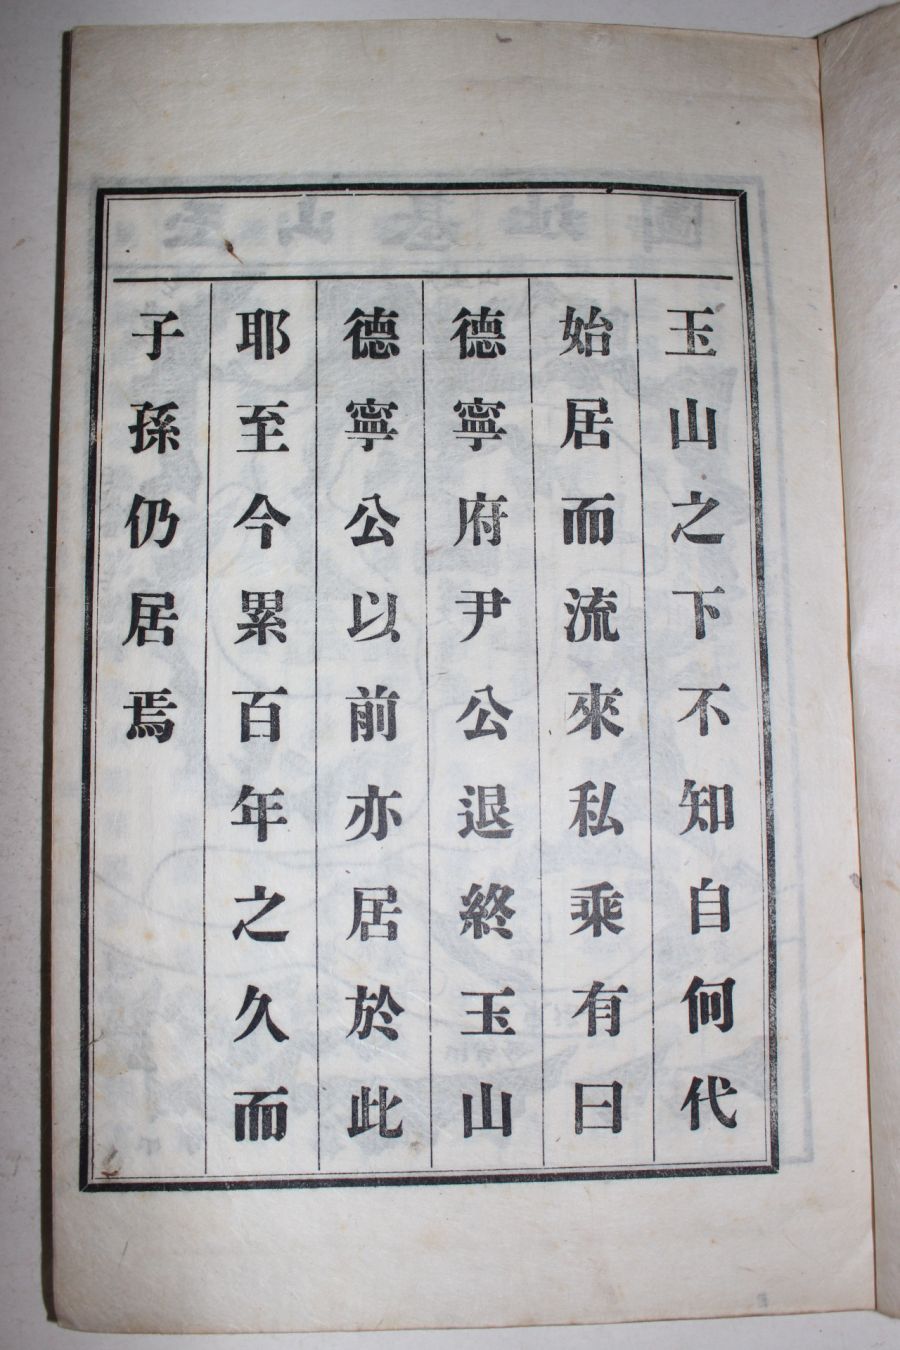 玉山之下不知自何代
始居而流來私乘有曰
德寧府尹公退終玉山
德寧公以前亦居於此
耶至今累百年之久而
子孫仍居焉